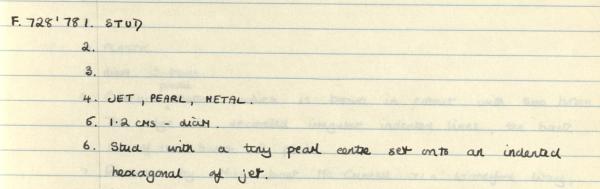 F.728'78 1. STUD
2.
3.
4. JET, PEARL, METAL.
5. 1.2 CMS - diAM.
6. Stud with a tiny pearl centre set onto an indented
hexagonal of jet.